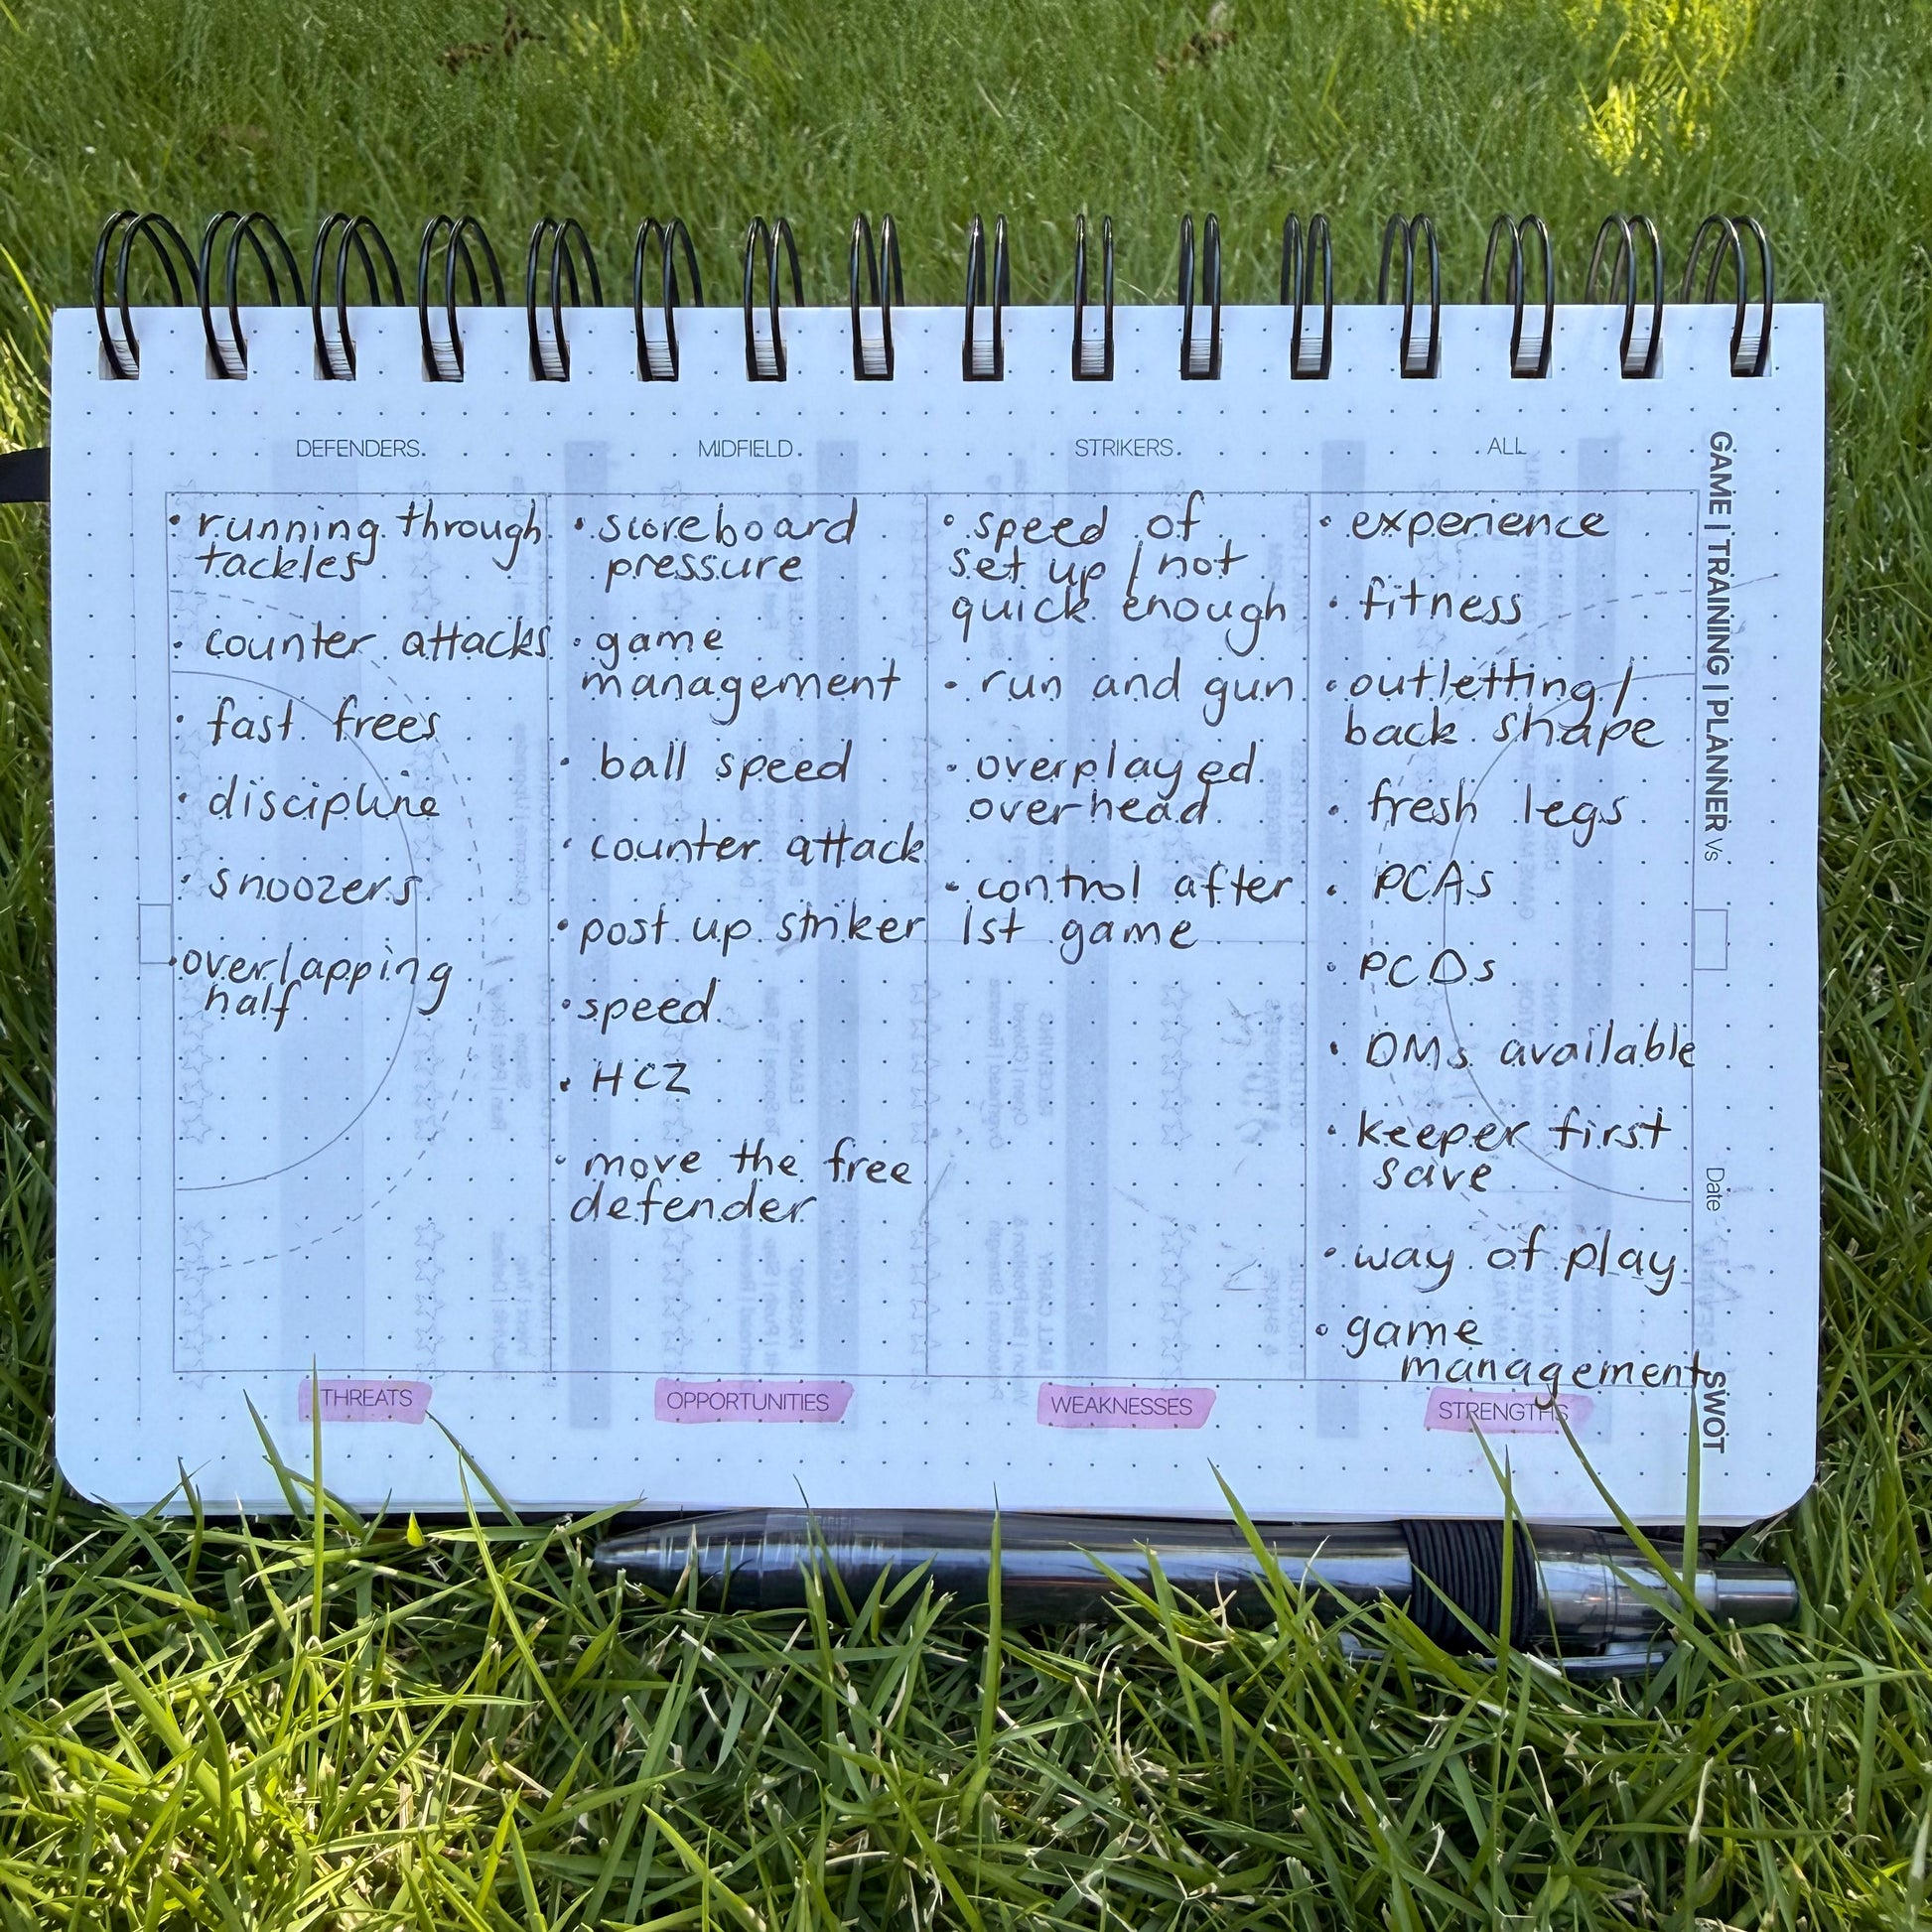 DEFENDERS
running through
tackles
counter attacks
fast frees
discipline
snoozers
overlapping
half
THREATS
MIDFIELD
scoreboard
pressure
game
management
ball speed
counter attack
post up striker
speed
HCZ
move the free
defender
OPPORTUNITIES
STRIKERS
speed of
set up / not
quick enough
run and gun
overplayed
overhead
control after
1st game
WEAKNESSES
ALL
experience
fitness
outletting /
back shape
fresh legs
PCAs
PCDs
DMs available
keeper first
save
way of play
game
management
STRENGTHS
GAME | TRAINING | PLANNER Vs
Date
SWOT